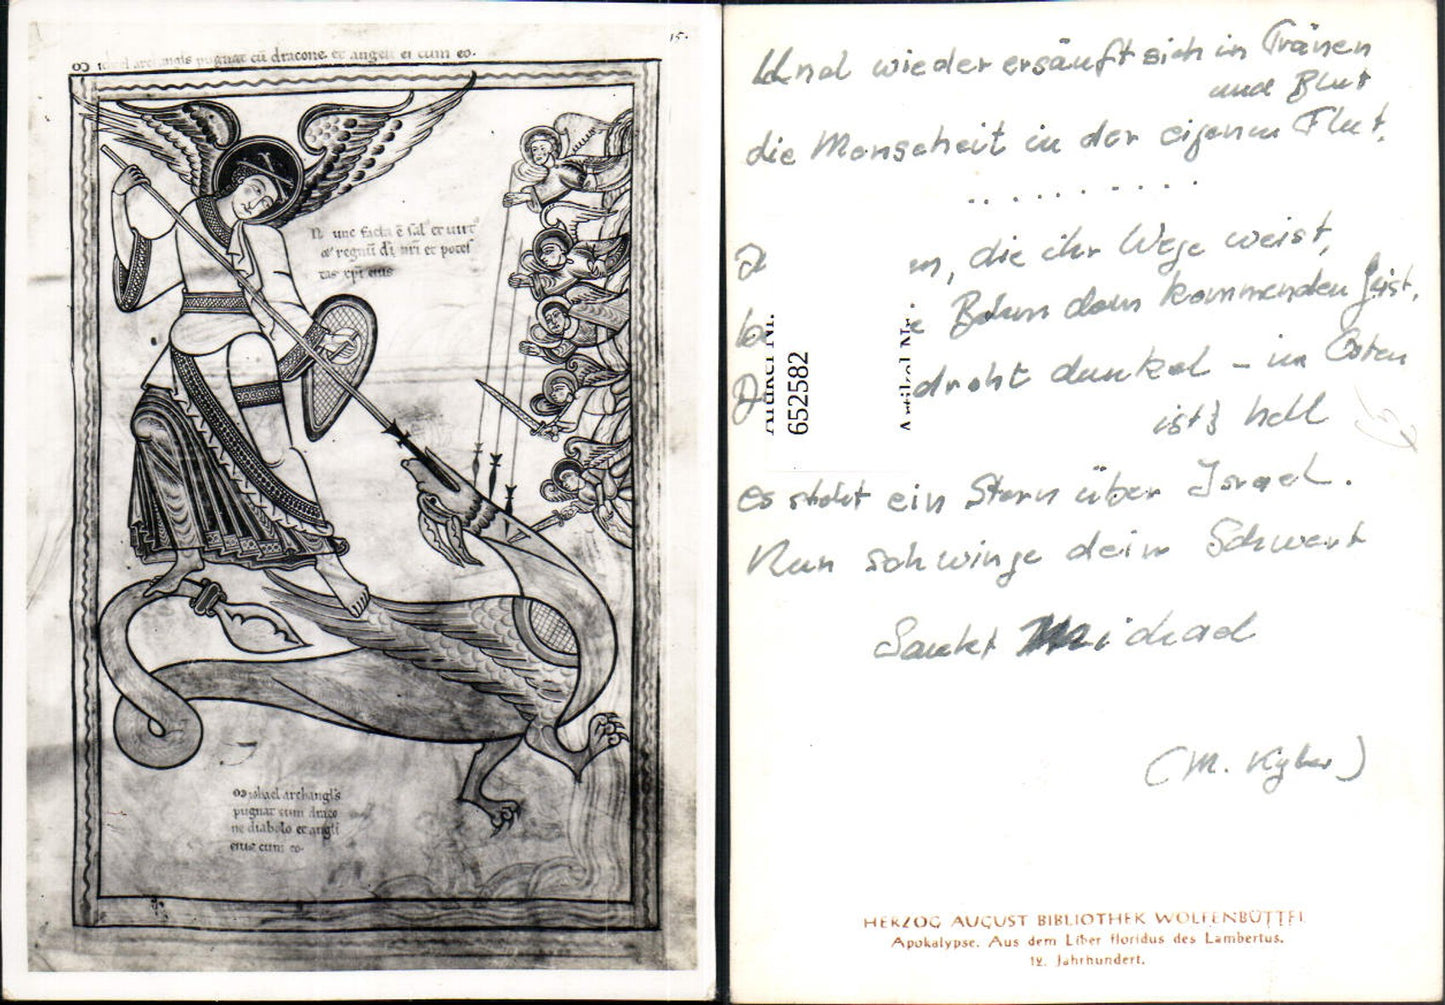 15.
Michael archangls pugnat cū dracone. et angeli ei cum eo.
Nunc facta ē sal' et uirt'
et regnū di nri et potes
tas xpi eius
Michael archangls
pugnat cum draco
ne diabolo et angli
eius cum eo.
Und wieder ersäuft sich in Tränen
und Blut
die Menschheit in der eigenen Flut.
. . . . . . . . . .
D n, die ihr Wege weist,
be e Bahn dem kommenden Geist.
D droht dunkel – im Osten
ist's hell
es steht ein Stern über Israel.
Nun schwinge dein Schwert
Sankt Michael
(M. Kyber)
Artikel Nr.
652582
Artikel Nr.
HERZOG AUGUST BIBLIOTHEK WOLFENBÜTTEL
Apokalypse. Aus dem Liber floridus des Lambertus.
12. Jahrhundert.